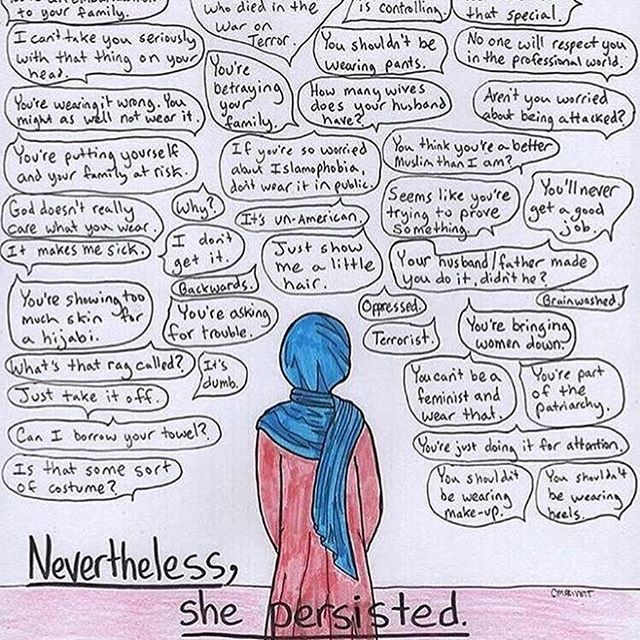 to your family.
who died in the
War on
Terror.
is controlling.
that special.
I can't take you seriously
with that thing on your
head.
You're
betraying
your
family.
You shouldn't be
wearing pants.
No one will respect you
in the professional world.
You're wearing it wrong. You
might as well not wear it.
How many wives
does your husband
have?
Aren't you worried
about being attacked?
You're putting yourself
and your family at risk.
If you're so worried
about Islamophobia,
don't wear it in public.
You think you're a better
Muslim than I am?
God doesn't really
care what you wear.
Why?
It's un-American.
Seems like you're
trying to prove
something.
You'll never
get a good
job.
It makes me sick.
I don't
get it.
Just show
me a little
hair.
Your husband/father made
you do it, didn't he?
Backwards.
Brainwashed.
You're showing too
much skin for
a hijabi.
You're asking
for trouble.
Oppressed.
Terrorist.
You're bringing
women down.
What's that rag called?
It's
dumb.
You can't be a
feminist and
wear that.
You're part
of the
patriarchy.
Just take it off.
Can I borrow your towel?
You're just doing it for attention.
Is that some sort
of costume?
You shouldn't
be wearing
make-up.
You shouldn't
be wearing
heels.
Nevertheless,
she persisted.